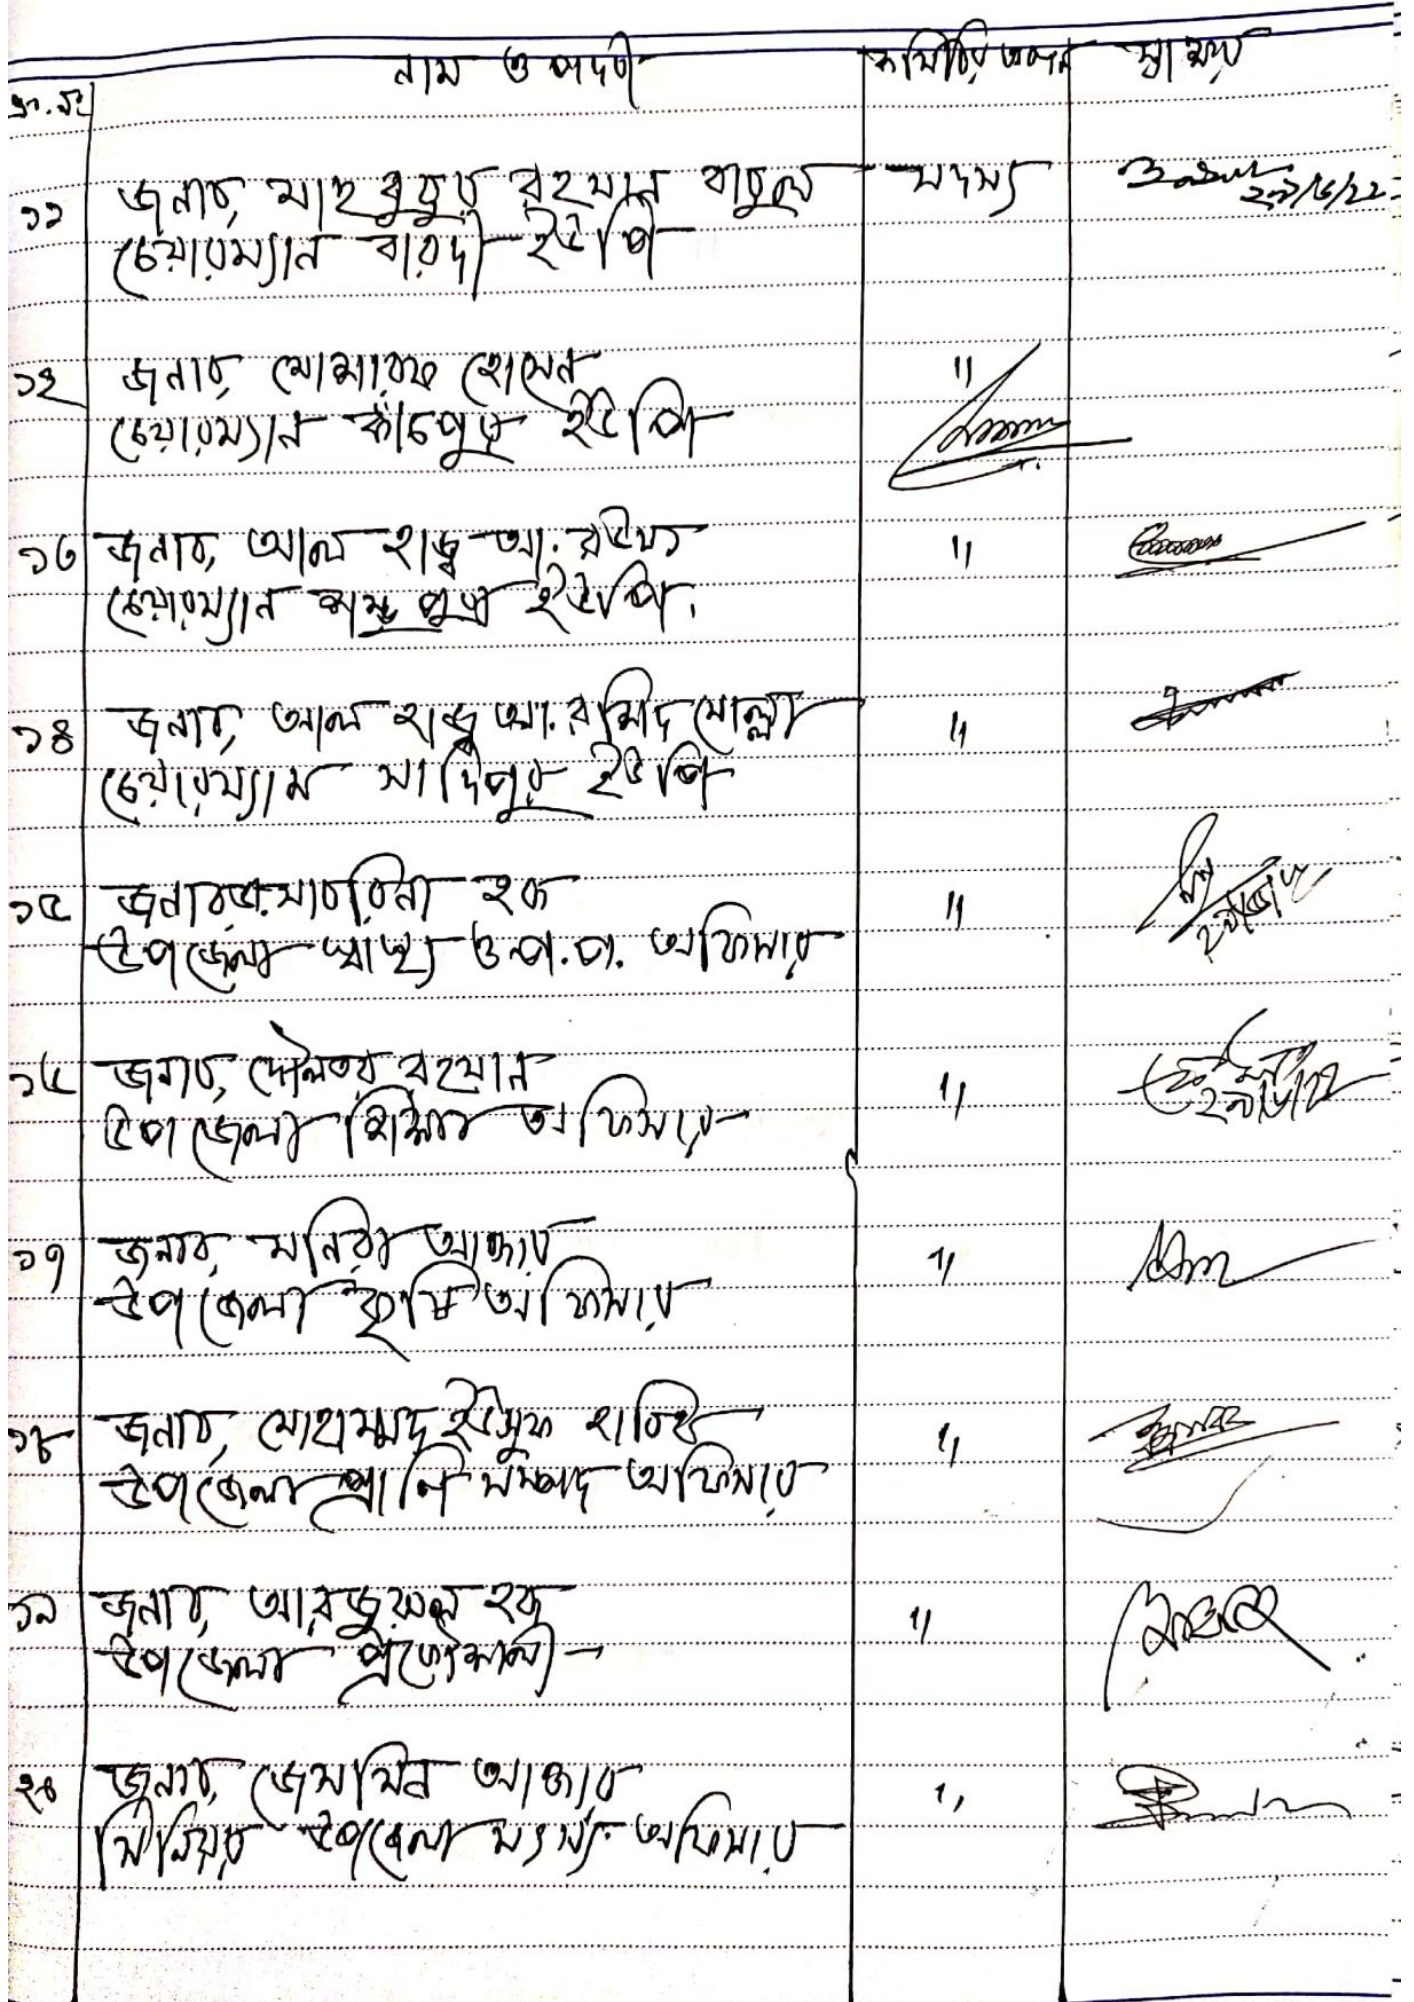 ক্র.নং নাম ও পদবী কমিটির স্বাক্ষর
১১ জনাব, মাহবুবুর রহমান বাবুল সদস্য ২৯/৬/২২
চেয়ারম্যান বারদী ইউপি
১২ জনাব, মোশারফ হোসেন "
চেয়ারম্যান কাঁচপুর ইউপি
১৩ জনাব, আল হাজ্ব আ. রউফ "
চেয়ারম্যান ইউপি.
১৪ জনাব, আল হাজ্ব আ. রশিদ মোল্লা "
চেয়ারম্যান সাদিপুর ইউপি
১৫ জনাব ডা. সাবরিনা হক "
উপজেলা স্বাস্থ্য ও প.প. অফিসার
১৬ জনাব, দৌলতর রহমান " ২৯/৬/২২
উপজেলা শিক্ষা অফিসার
১৭ জনাব, মনিরা আক্তার "
উপজেলা কৃষি অফিসার
১৮ জনাব, মোহাম্মদ ইউসুফ হাবিব "
উপজেলা প্রানি সম্পদ অফিসার
১৯ জনাব, আরজুরুল হক "
উপজেলা প্রকৌশলী
২০ জনাব, জেসমিন আক্তার "
সিনিয়র উপজেলা মৎস্য অফিসার